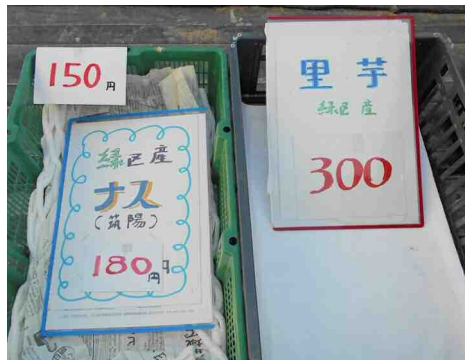 150円
緑区産
ナス
(筑陽)
180円
里芋
緑区産
300